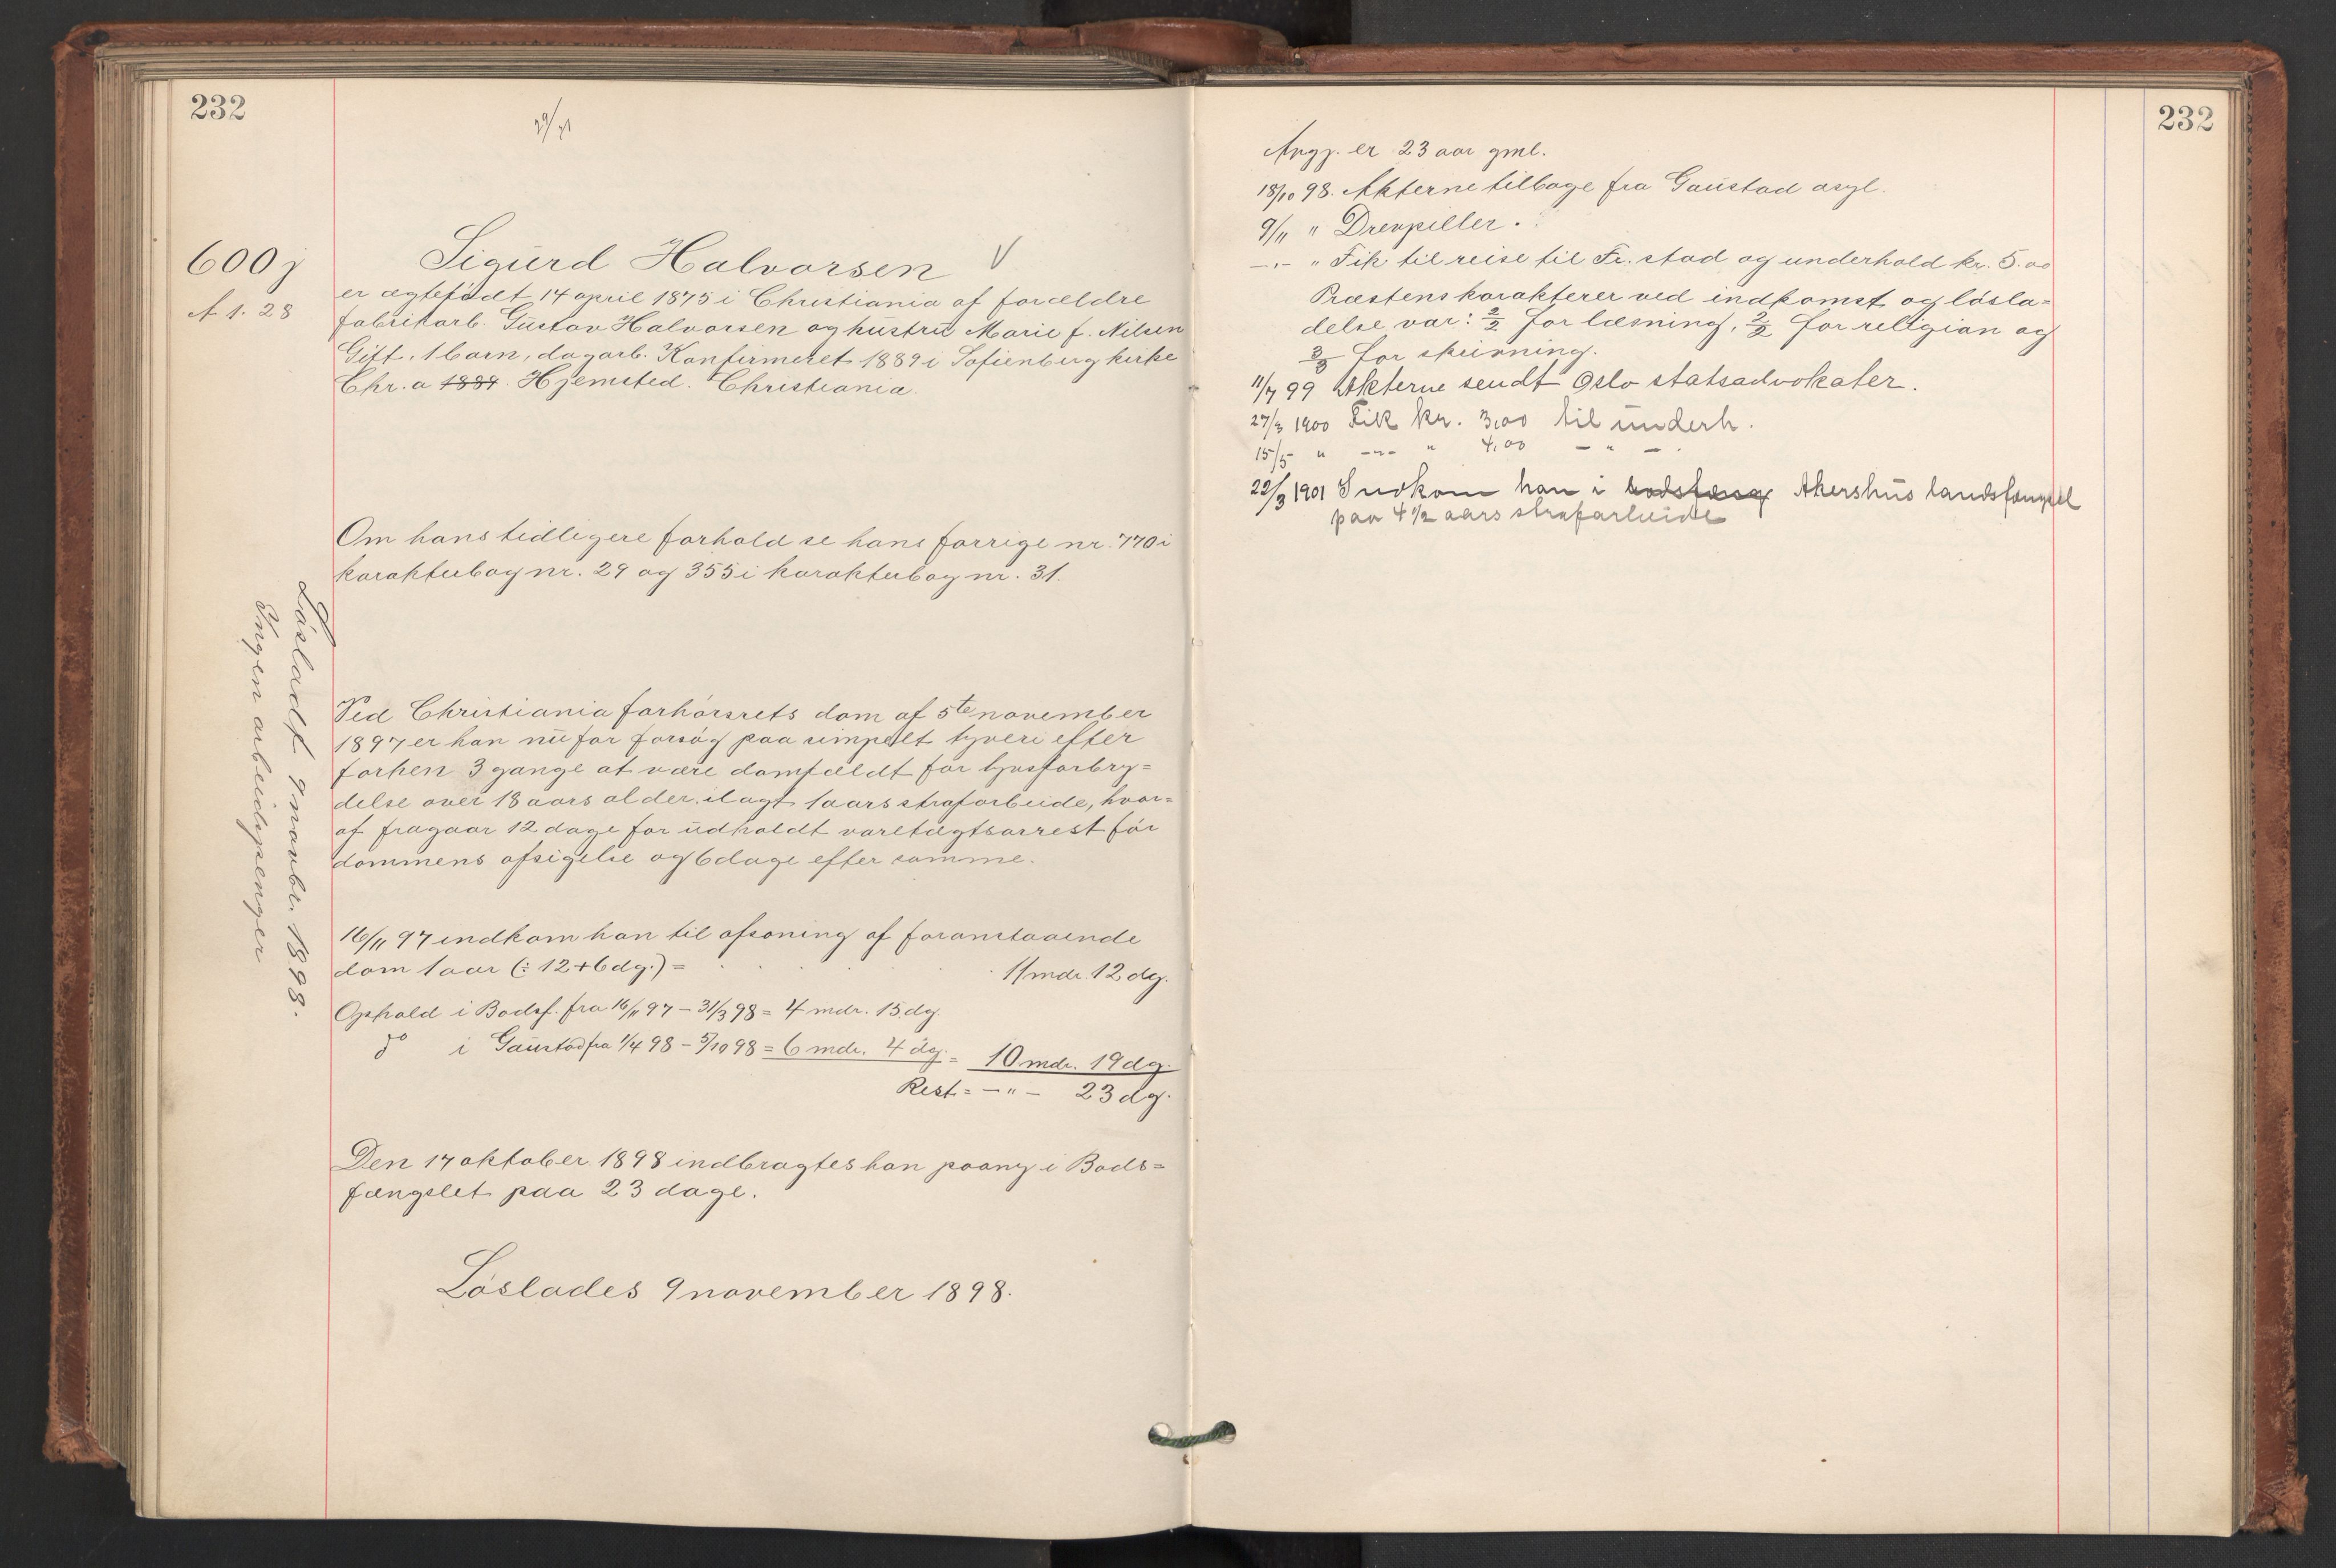 232
29/31
600 j
A 1. 28
Sigurd Halvorsen V
er ægtefödt 14 april 1875 i Christiania af forældre
fabrikarb. Gustav Halvorsen og hustru Marie f. Nilsen
Gift, 1 barn, dagarb. Konfirmeret 1889 i Sofienberg kirke
Chr.a 1889. Hjemsted. Christiania.
Om hans tidligere forhold se hans forrige nr. 770 i
karakterbog nr. 29 og 355 i karakterbog nr. 31.
Lösladt 9 novbr. 1898.
Ingen arbeidspenger
Ved Christiania forhörsrets dom af 5te november
1897 er han nu for forsög paa simpelt tyveri efter
forhen 3 gange at være domfældt for tyvsforbry=
delse over 18 aars alder, ilagt 1 aars strafarbeide, hvor=
af fragaar 12 dage for udholdt varetægtsarrest för
dommens afsigelse og 6 dage efter samme.
16/11 97 indkom han til afsoning af foranstaaende
dom 1 aar (÷ 12+6 dg.) = 11 mdr. 12 dg.
Ophold i Bodsf. fra 16/11 97 – 31/3 98 = 4 mdr. 15 dg.
do i Gaustad fra 1/4 98 – 5/10 98 = 6 mdr. 4 dg. = 10 mdr. 19 dg.
Rest = – " – 23 dg.
Den 17 oktober 1898 indbragtes han paany i Bods=
fængslet paa 23 dage.
Löslades 9 november 1898.
232
Angp. er 23 aar gml.
18/10 98. Akterne tilbage fra Gaustad asyl.
9/11 " Drevpiller.
–.– " Fik til reise til Fr.stad og underhold kr. 5.00
Præstens karakterer ved indkomst og lösla=
delse var: 2/2 for læsning, 2/2 for religion og
3/3 for skrivning.
11/7 99 Akterne sendt Oslo statsadvokater.
27/3 1900 Fik kr. 3,00 til underh.
15/5 " –"– " 4,00 – " – .
22/3 1901 Indkom han i bodsfæng Akershus landsfængsel
paa 4 1/2 aars strafarbeide